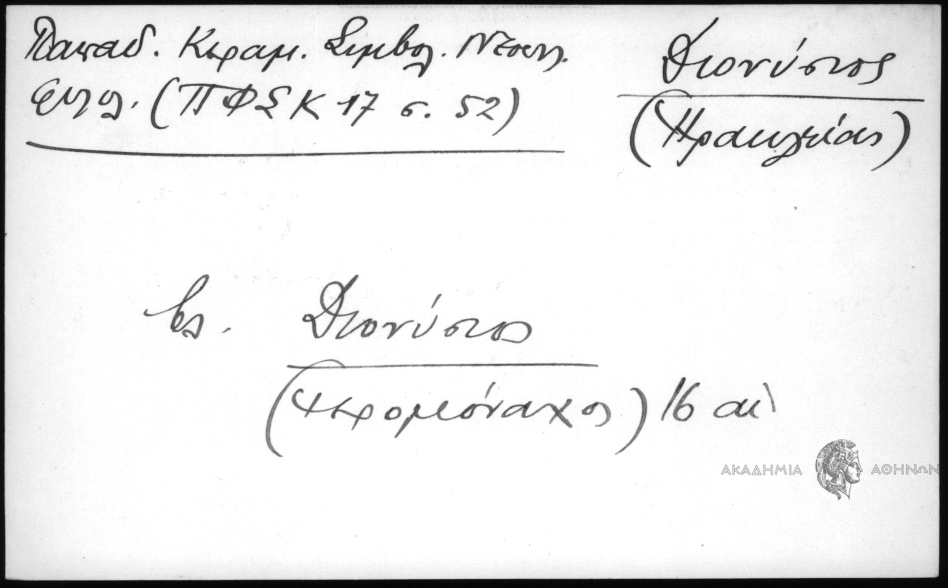 Παπαδ. Κεραμ. Συμβολ. Νεοελ.
φιλολ. (ΠΦΣΚ 17 σ. 52)
Διονύσιος
(Ηρακλείας)
βλ. Διονύσιος
(Ιερομόναχος) 16 αι
ΑΚΑΔΗΜΙΑ ΑΘΗΝΩΝ